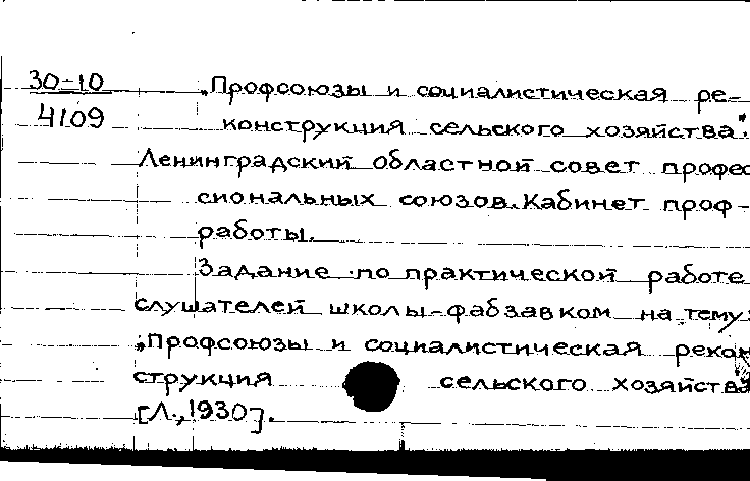 30-10
4109
„Профсоюзы и социалистическая ре-
конструкция сельского хозяйства".
Ленинградский областной совет профес
сиональных союзов. Кабинет проф-
работы.
Задание по практической работе
слушателей школы-фабзавком на тему:
„Профсоюзы и социалистическая рекон
струкция сельского хозяйства
[Л., 1930].